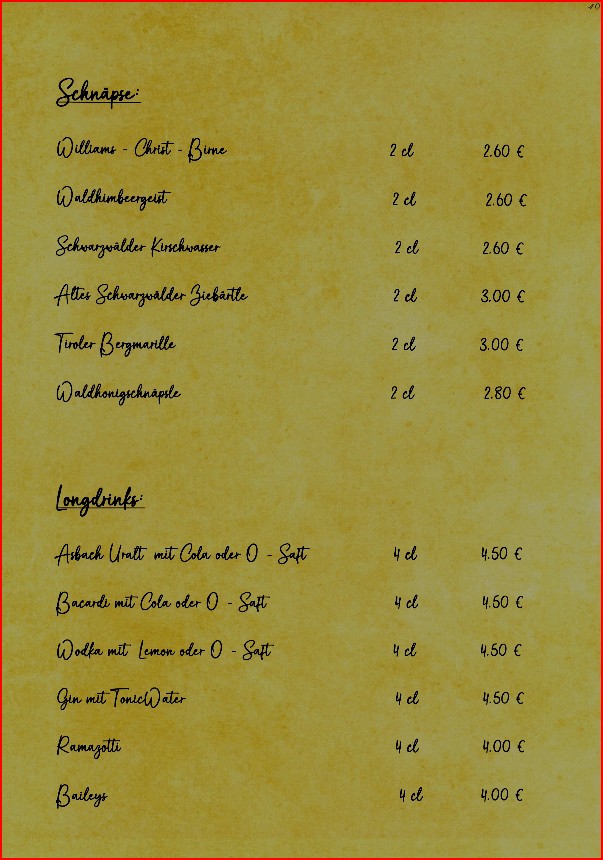 40
Schnäpse:
Williams - Christ - Birne 2 cl 2.60 €
Waldhimbeergeist 2 cl 2.60 €
Schwarzwälder Kirschwasser 2 cl 2.60 €
Altes Schwarzwälder Ziebärtle 2 cl 3.00 €
Tiroler Bergmarille 2 cl 3.00 €
Waldhonigschnäpsle 2 cl 2.80 €
Longdrinks:
Asbach Uralt mit Cola oder O - Saft 4 cl 4.50 €
Bacardi mit Cola oder O - Saft 4 cl 4.50 €
Wodka mit Lemon oder O - Saft 4 cl 4.50 €
Gin mit TonicWater 4 cl 4.50 €
Ramazotti 4 cl 4.00 €
Baileys 4 cl 4.00 €